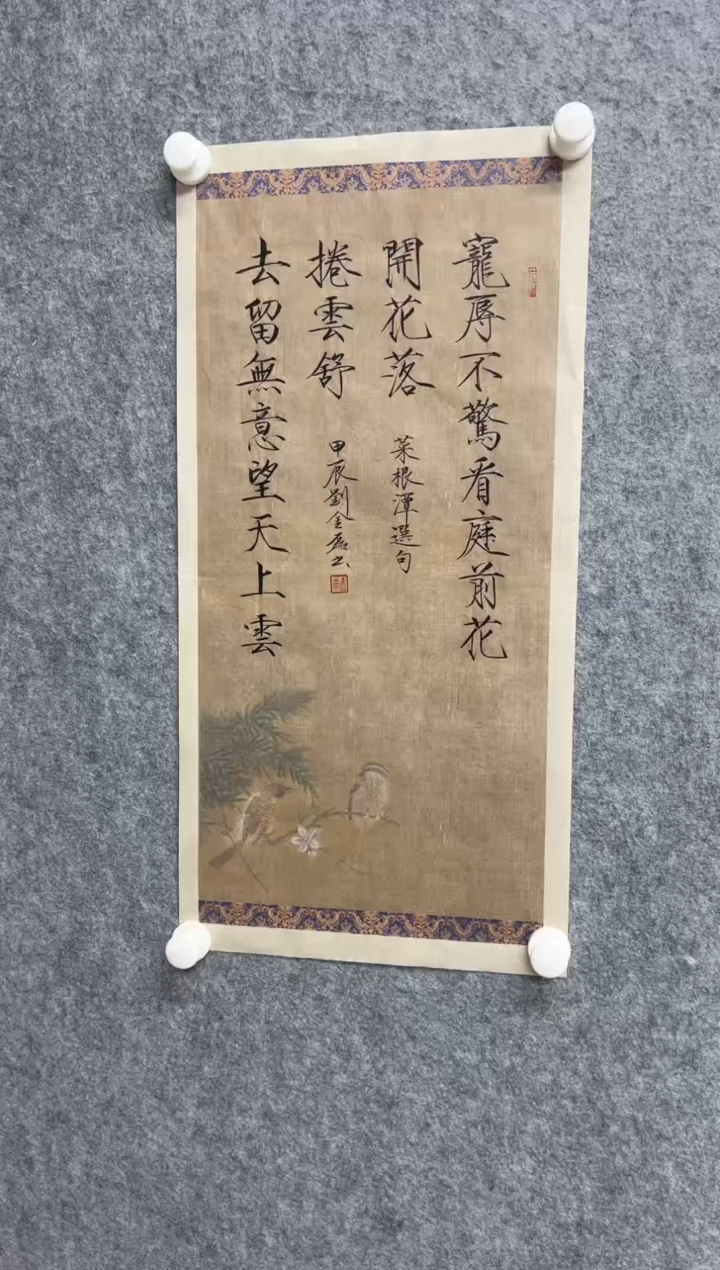 寵辱不驚看庭前花
開花落
菜根潭選句
去留無意望天上雲
捲雲舒
甲辰劉金磊书